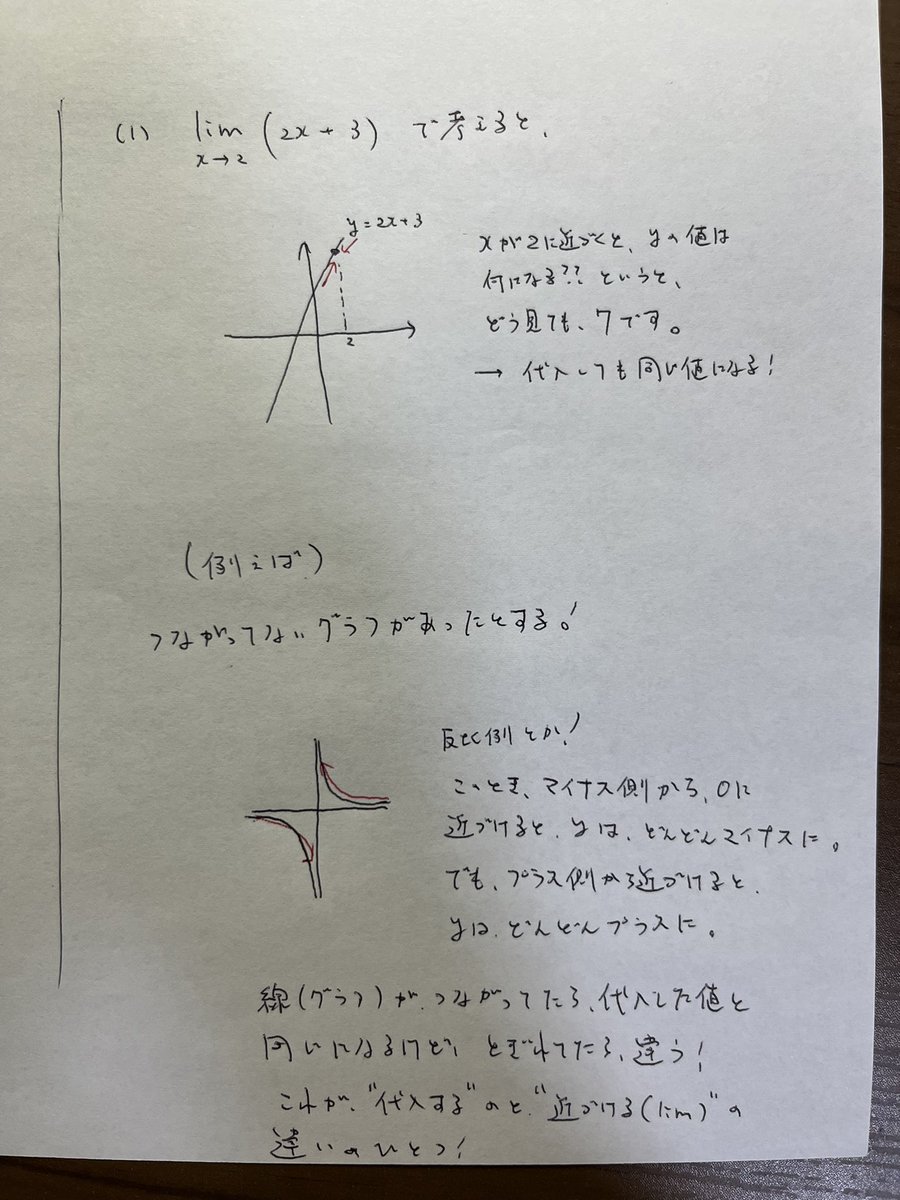 (1) lim (2x + 3) で考えると、
x→2
y=2x+3
2
xが2に近づくと、yの値は
何になる?? というと、
どう見ても、7です。
→ 代入しても同じ値になる!
(例えば)
つながってないグラフがあったとする!
反比例とか!
このとき、マイナス側から、0に
近づけると、yは、どんどんマイナスに。
でも、プラス側から近づけると、
yは、どんどんプラスに。
線(グラフ)が、つながってたら、代入した値と
同じになるけど、とぎれてたら、違う!
これが、"代入する"のと、"近づける(lim)"の
違いのひとつ!